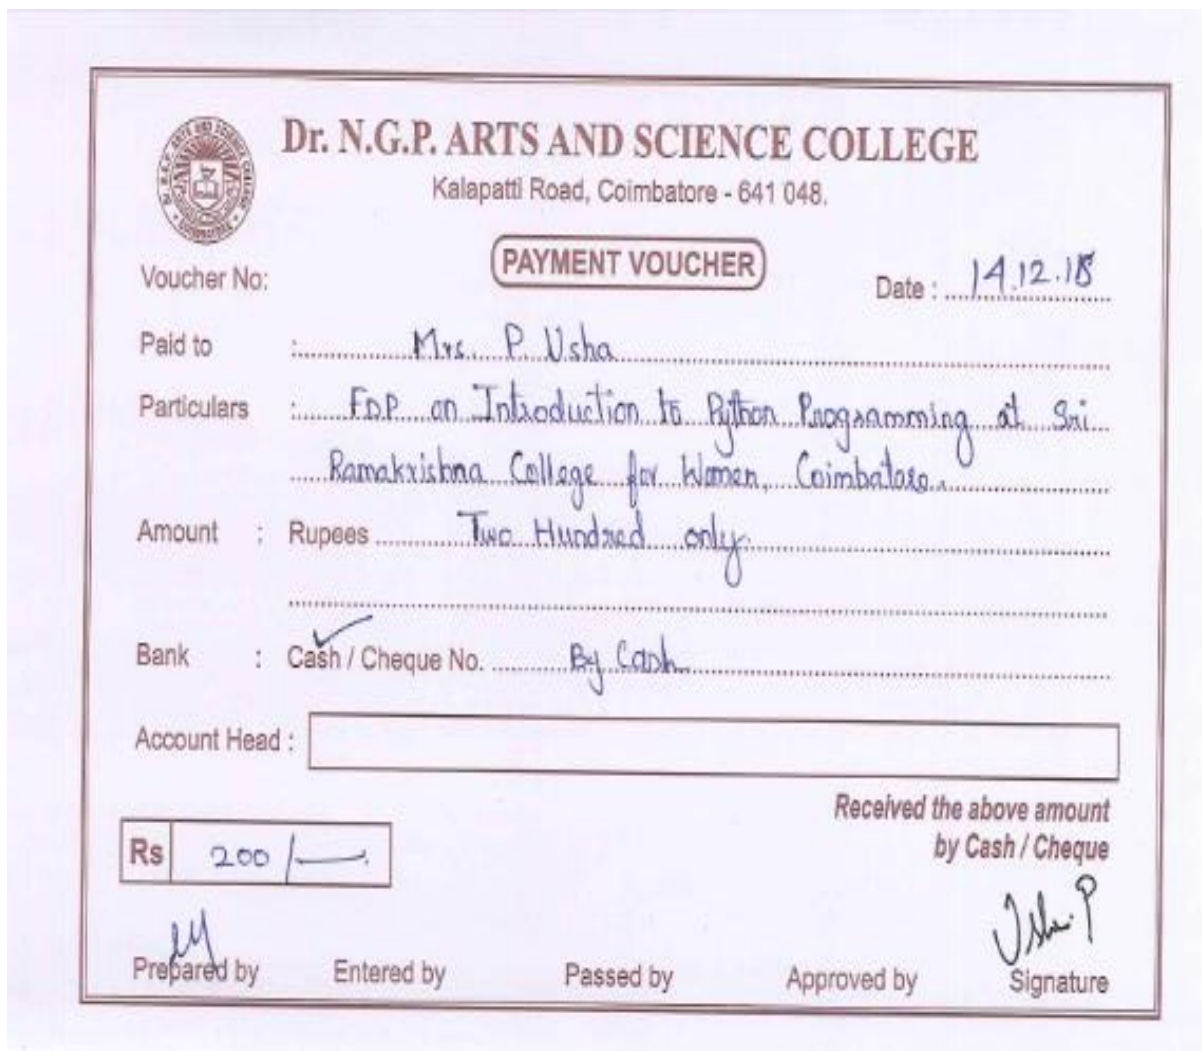 Dr. N.G.P. ARTS AND SCIENCE COLLEGE
Kalapatti Road, Coimbatore - 641 048.
PAYMENT VOUCHER
Voucher No:
Date : 14.12.18
Paid to : Mrs. P. Usha
Particulars : FDP on Introduction to Python Programming at Sri
Ramakrishna College for Women, Coimbatore.
Amount : Rupees Two Hundred only.
Bank : Cash / Cheque No. By Cash
Account Head :
Received the above amount
by Cash / Cheque
Rs 200/-
Usha.P
Prepared by Entered by Passed by Approved by Signature